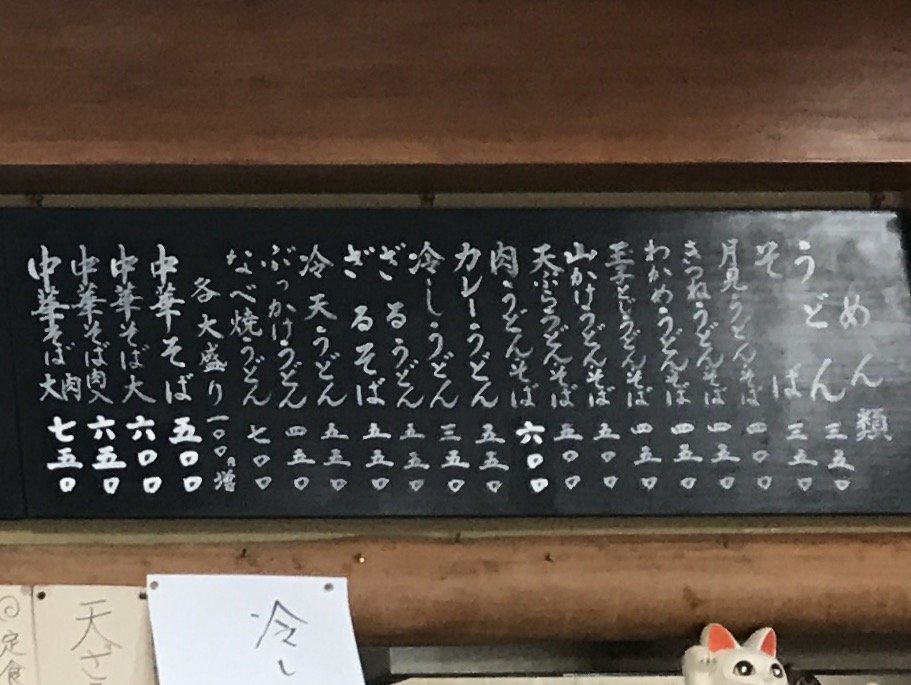 めん類
うどん 三五〇
そば 三五〇
月見うどんそば 四〇〇
きつねうどんそば 四五〇
わかめうどんそば 四五〇
玉子とじうどんそば 四五〇
山かけうどんそば 五〇〇
天ぷらうどんそば 五〇〇
肉うどんそば 六〇〇
カレーうどん 五五〇
冷しうどん 三五〇
ざるうどん 五五〇
ざるそば 五五〇
冷天うどん 五五〇
ぶっかけうどん 四五〇
なべ焼うどん 七〇〇
各大盛り 一〇〇円増
中華そば 五〇〇
中華そば大 六〇〇
中華そば肉入 六五〇
中華そば肉大 七五〇
冷し
天ざ
定食